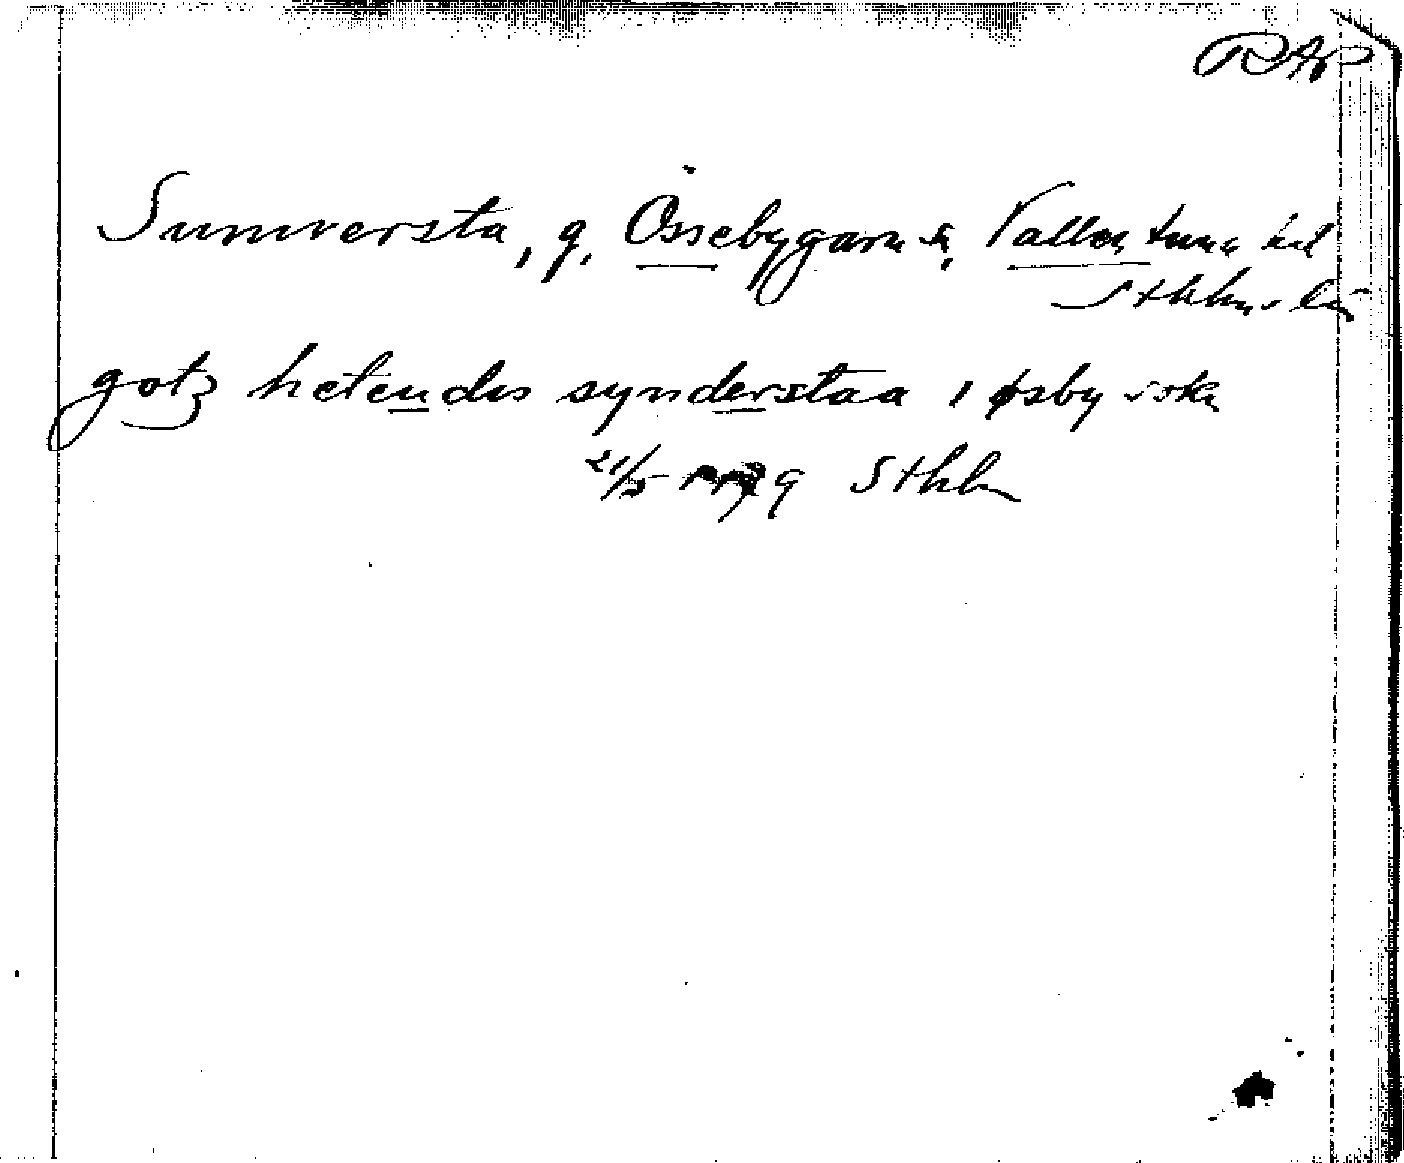 RAP
Sumversta, g, Össebygarn sn, Vallentuna hd
Sthlms län
gotz hetendis synderstaa i øsby sokn
21/5 Sthlm